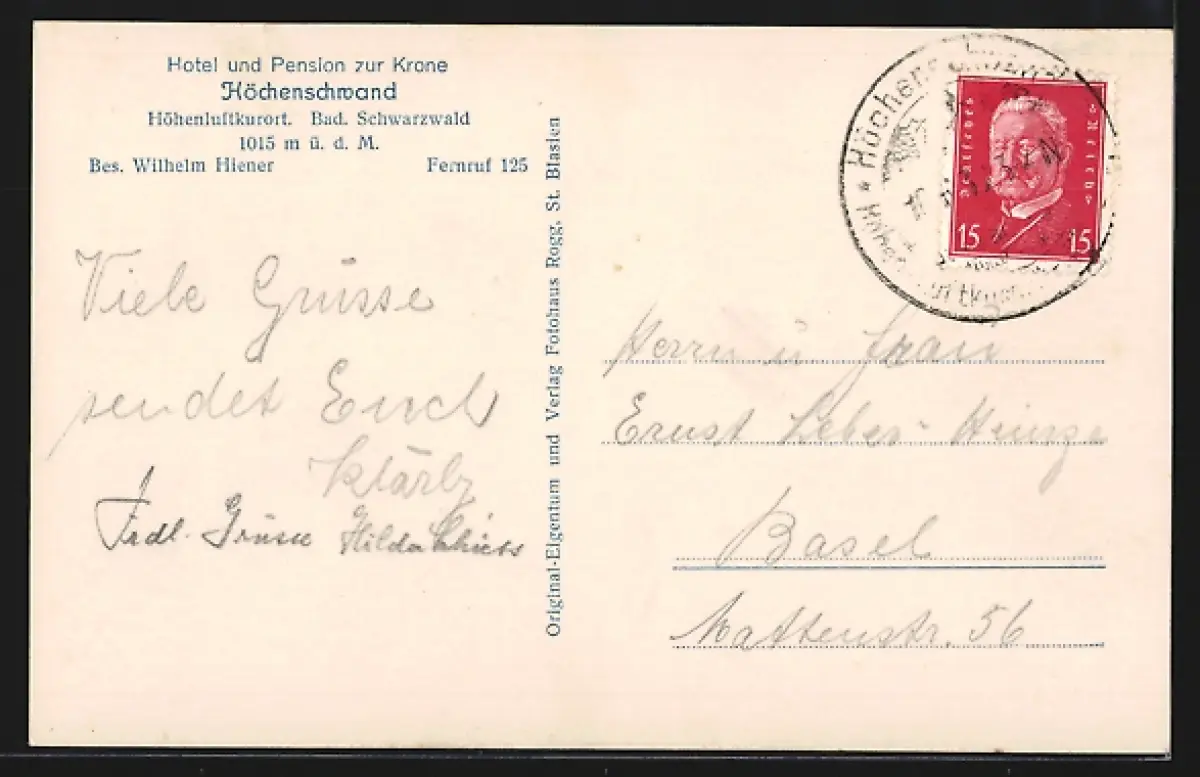 Hotel und Pension zur Krone
Höchenschwand
Höhenluftkurort. Bad. Schwarzwald
1015 m ü. d. M.
Bes. Wilhelm Hiener Fernruf 125
Viele Grüsse
sendet Euch
Klärly
Frdl. Grüsse Hilda
Original-Eigentum und Verlag Fotohaus Rogg, St. Blasien
Deutsches Reich
15 15
Höchenschwand
Herrn u Frau
Ernst Leber-Heinze
Basel
Mattenstr. 56